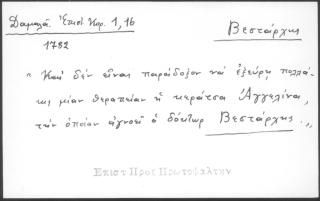 Δαμαλᾶ. Ἐπιστ Κερ. 1, 16
Βεστάρχης
1782
" Καὶ δὲν εἶναι παράδοξον νὰ ἐξεύρῃ πολλά-
κις μίαν θεραπείαν ἡ κεράτσα Ἀγγελίνα,
τὴν ὁποίαν ἀγνοεῖ ὁ δόκτωρ Βεστάρχης . "
Επιστ Προς Πρωτοψαλτην